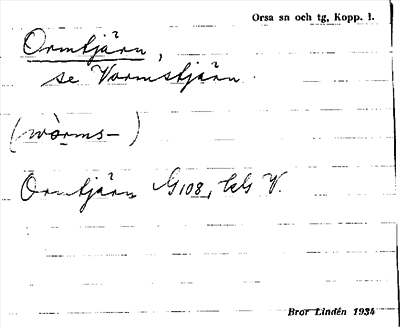 Orsa sn och tg, Kopp. l.
Ormtjärn,
se Vormstjärn.
(wòrms- )
Ormtjärn G108, kG V.
Bror Lindén 1934